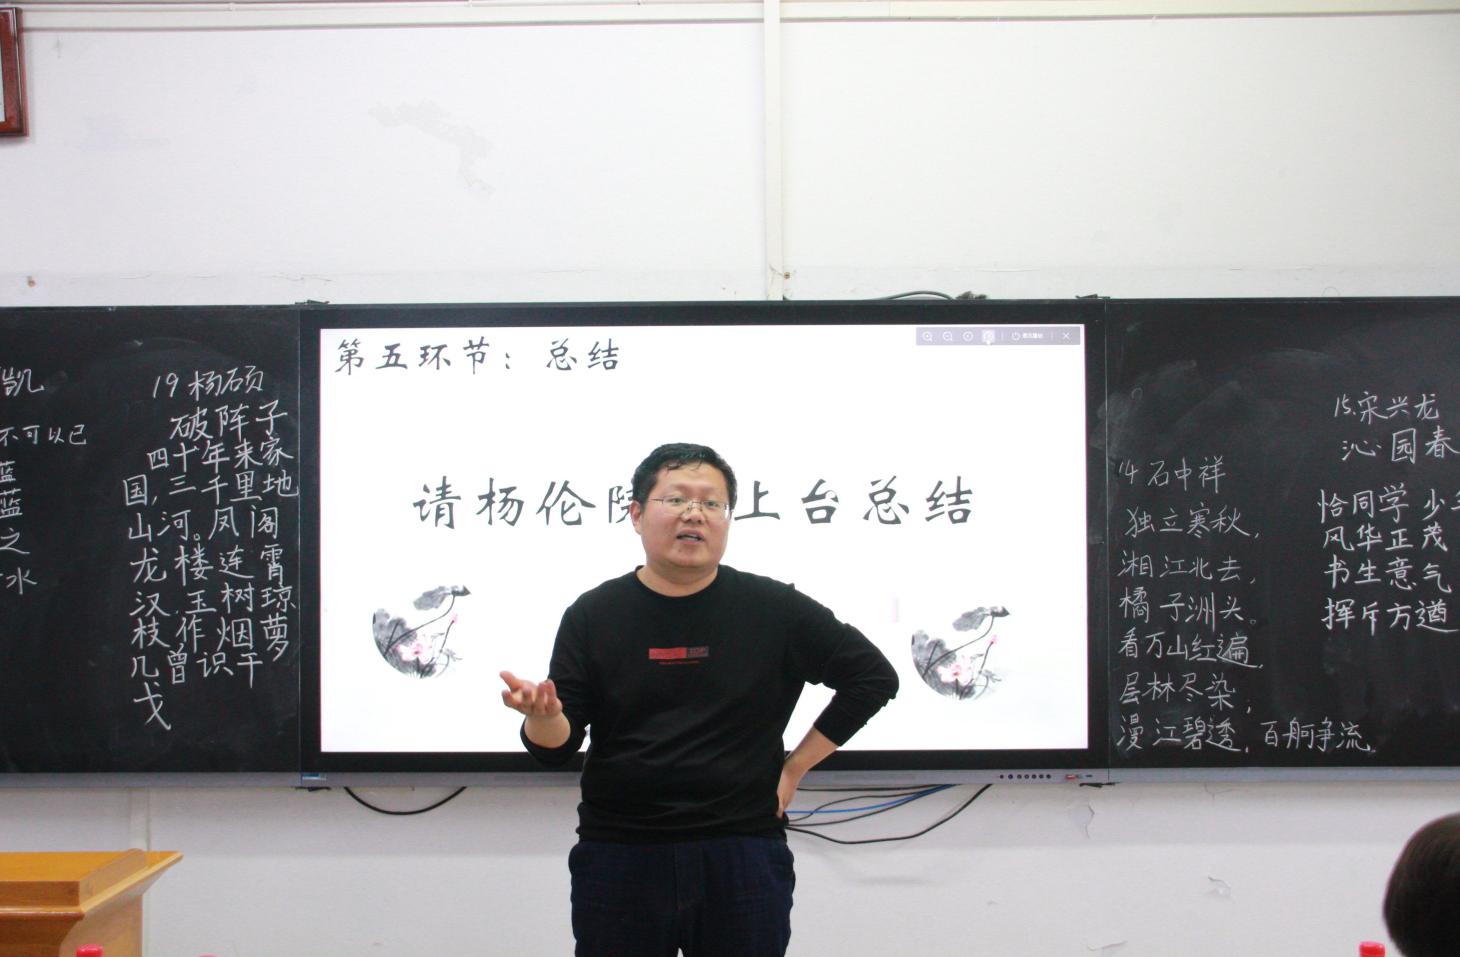 凯
不可以已
蓝
蓝
之
水
19杨硕
破阵子
四十年来家
国,三千里地
山河。凤阁
龙楼连霄
汉玉树琼
枝作烟萝
几曾识干
戈
第五环节：总结
请杨伦 上台总结
14石中祥
独立寒秋,
湘江北去,
橘子洲头。
看万山红遍,
层林尽染;
漫江碧透,百舸争流.
15.宋兴龙
沁园春
恰同学少
风华正茂
书生意气
挥斥方遒